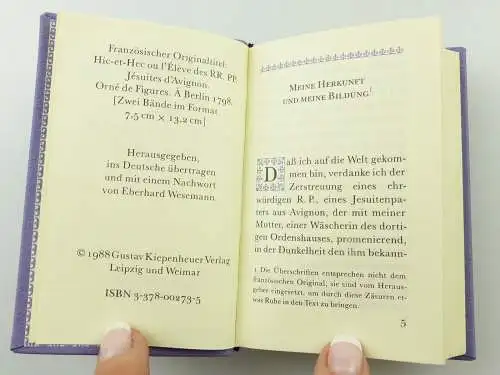 Französischer Originaltitel:
Hic-et-Hec ou l'Élève des RR. PP.
Jésuites d'Avignon.
Orné de Figures. À Berlin 1798.
[Zwei Bände im Format
7,5 cm × 13,2 cm]
Herausgegeben,
ins Deutsche übertragen
und mit einem Nachwort
von Eberhard Wesemann
© 1988 Gustav Kiepenheuer Verlag
Leipzig und Weimar
ISBN 3-378-00273-5
MEINE HERKUNFT
UND MEINE BILDUNG¹
Daß ich auf die Welt gekom-
men bin, verdanke ich der
Zerstreuung eines ehr-
würdigen R. P., eines Jesuitenpa-
ters aus Avignon, der mit meiner
Mutter, einer Wäscherin des dorti-
gen Ordenshauses, promenierend,
in der Dunkelheit den ihm bekann-
1 Die Überschriften entsprechen nicht dem
französischen Original, sie sind vom Heraus-
geber eingesetzt, um durch diese Zäsuren et-
was Ruhe in den Text zu bringen.
5